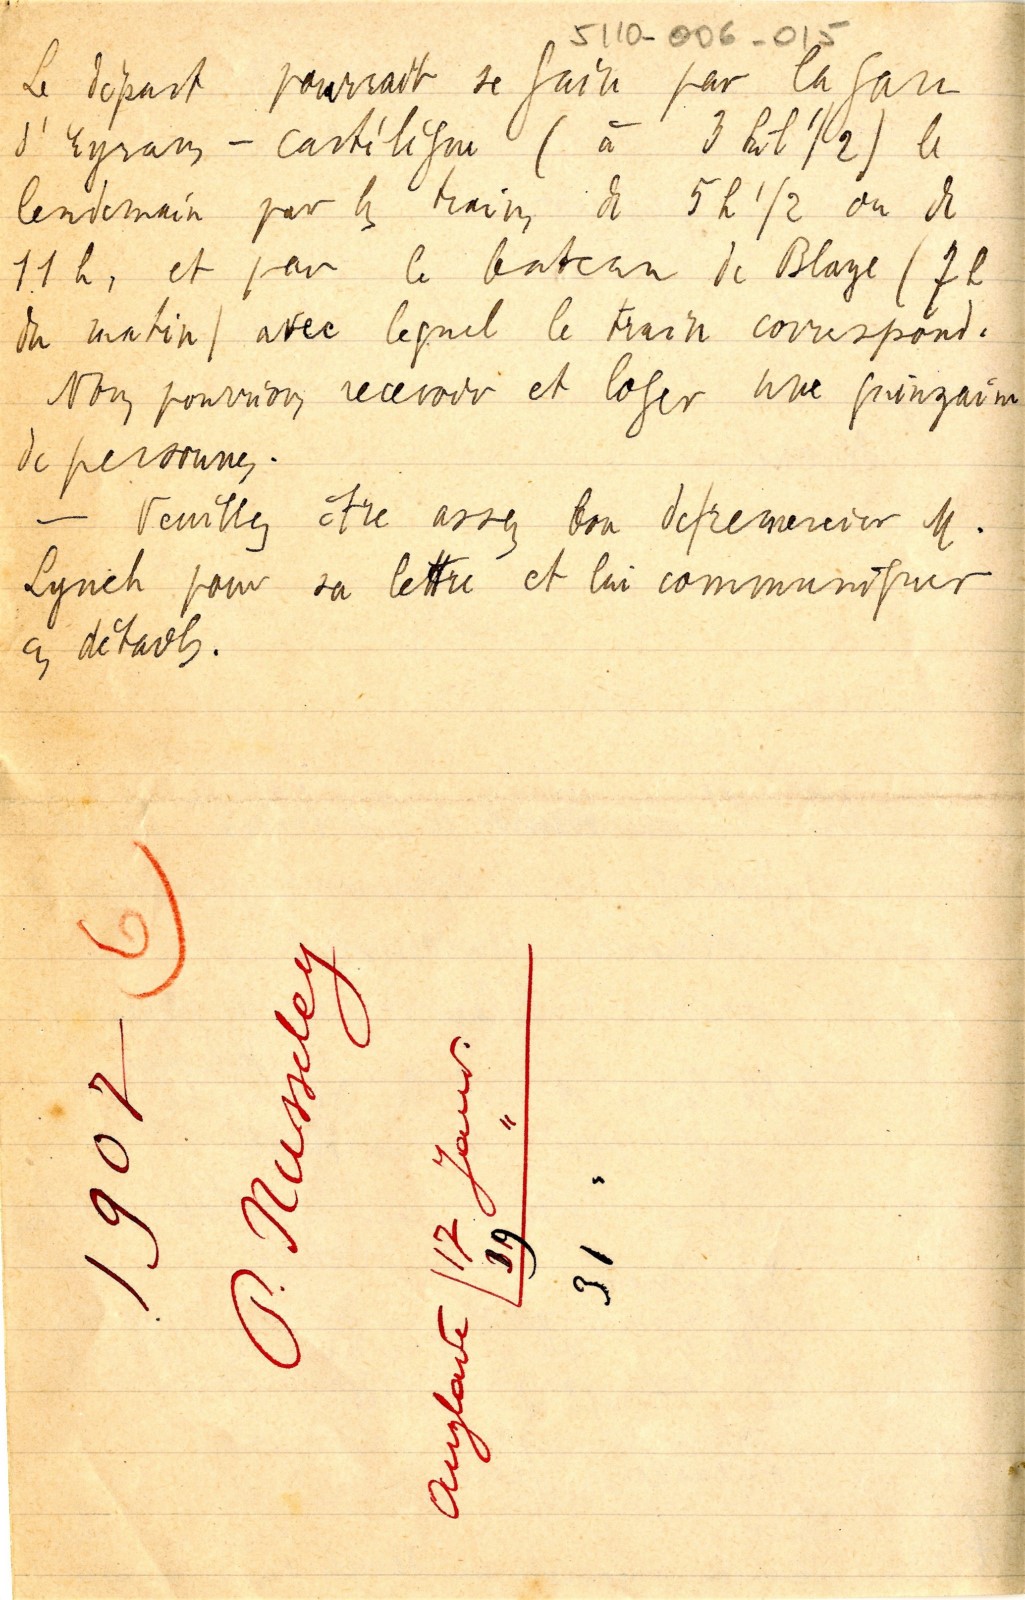 5110-006-015
Le départ pourrait se faire par la gare
d'Eyrans – Cartelègue ( à 3 kil 1/2) le
lendemain par les trains de 5 h 1/2 ou de
11 h, et par le bateau de Blaye ( 7 h
du matin) avec lequel le train correspond.
Nous pourrions recevoir et loger une quinzaine
de personnes.
– Veuillez être assez bon de remercier M.
Lynch pour sa lettre et lui communiquer
ces détails.
1907
6)
P. Nussley
Anglade 17 Janv.
39 "
31 "